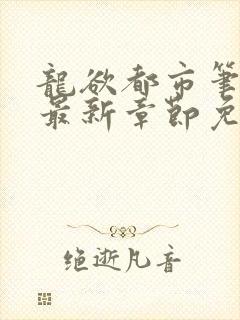 龍欲都市筆
最新章節免
绝逝凡音